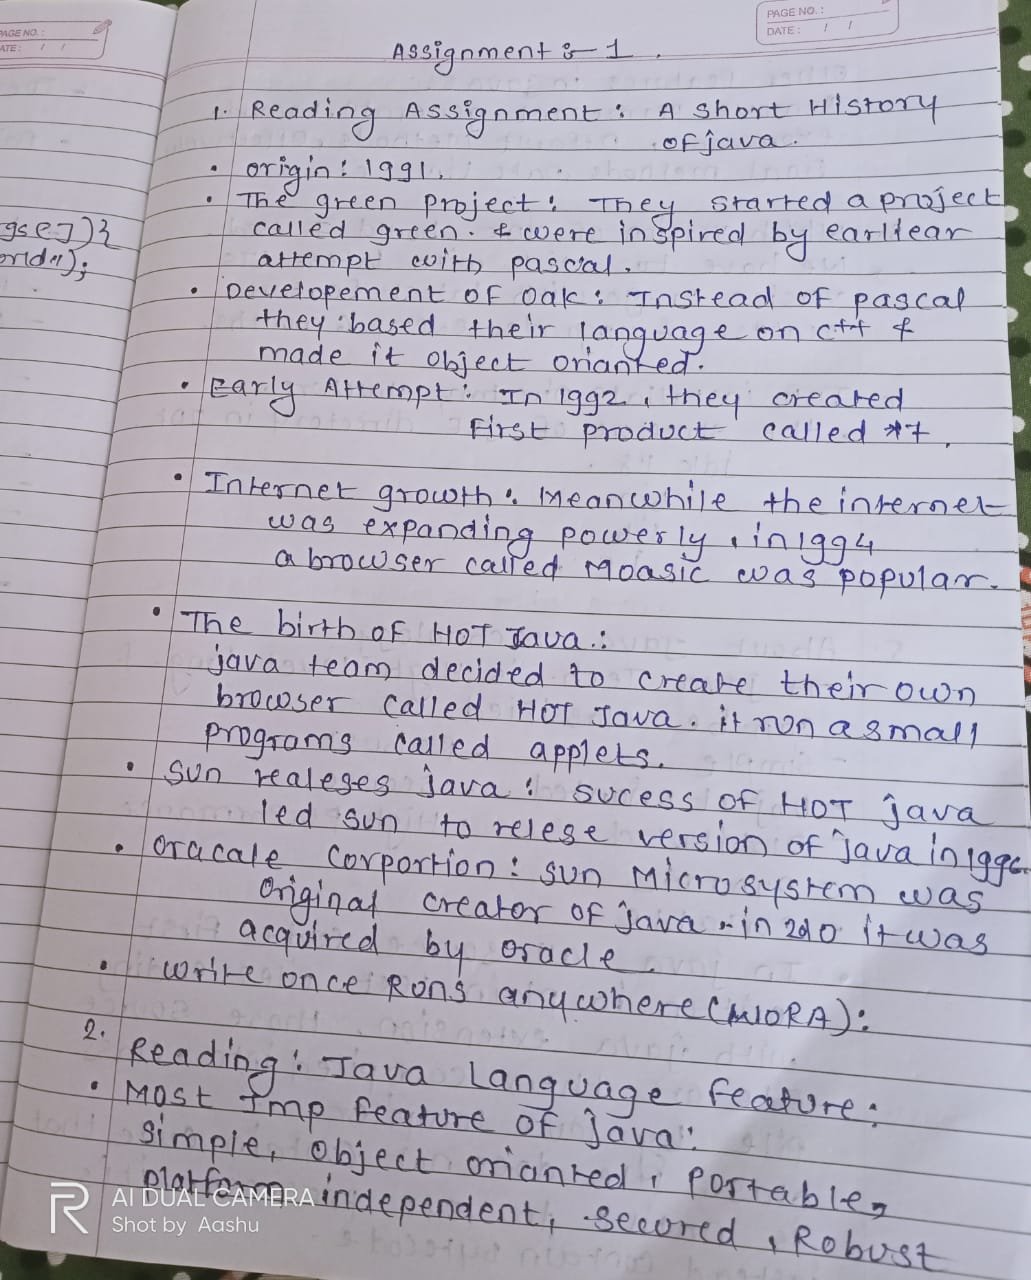 PAGE NO.:
ATE: / /
PAGE NO.:
DATE: / /
Assignment :- 1.
1. Reading Assignment: A short History
of java.
• origin: 1991.
• The green project: They started a project
called green. & were inspired by earliear
attempt with pascal.
gse])}
orld");
• Developement of oak: Instead of pascal
they based their language on c++ &
made it object orianted.
• Early Attempt: In 1992, they created
First product called *7.
• Internet growth: Meanwhile the internet
was expanding powerly, in 1994
a browser called Moasic was popular.
• The birth of HOT Java.:
java team decided to create their own
browser called HOT Java. it run a small
programs called applets.
• sun realeges java: sucess of HOT java
led sun to relese version of java in
• oracale corportion: sun Microsystem was
original creator of java. in it was
acquired by oracle.
• write once Runs anywhere (WORA):
2. Reading: Java Language feature:
• Most Imp feature of java:
simple, object orianted, portable,
platform independent, secured, Robust
AI DUAL CAMERA
Shot by Aashu